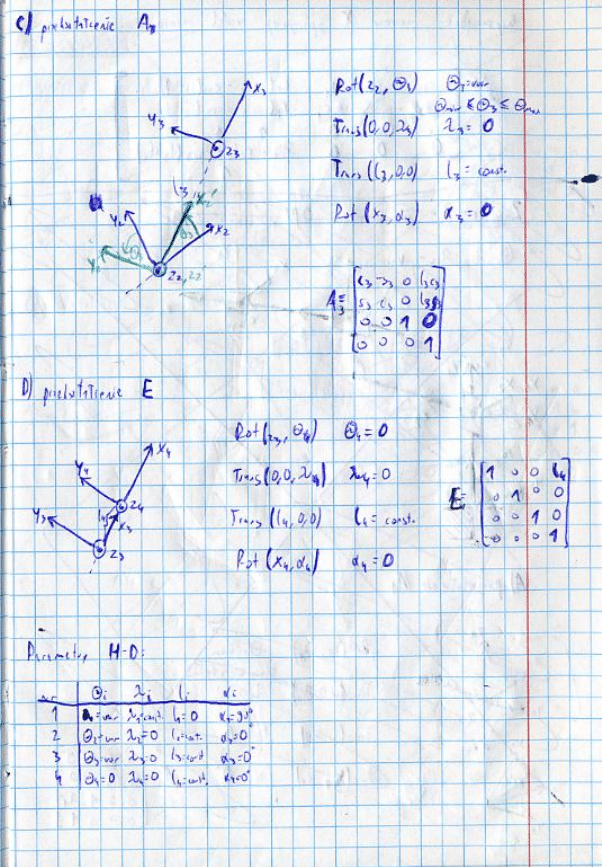 C) przekształcenie A₃
x₃
y₃
z₃
l₃
x₂'
y₂
x₂
θ₃
z₂, z₂'
Rot(z₂, Θ₃) Θ₃=var
Θmin ≤ Θ₃ ≤ Θmax
Trans(0,0,λ₃) λ₃ = 0
Trans(l₃,0,0) l₃ = const.
Rot(x₃, α₃) α₃ = 0
A₃ =
c₃ -s₃ 0 l₃c₃
s₃ c₃ 0 l₃s₃
0 0 1 0
0 0 0 1
D) przekształcenie E
x₄
y₄
z₄
y₃
l₄
x₃
z₃
Rot(z₃, Θ₄) Θ₄ = 0
Trans(0,0,λ₄) λ₄ = 0
Trans(l₄,0,0) l₄ = const.
Rot(x₄, α₄) α₄ = 0
E =
1 0 0 l₄
0 1 0 0
0 0 1 0
0 0 0 1
Parametry H-D:
nr Θi λi li αi
1 Θ₁=var λ₁=const. l₁=0 α₁=90°
2 Θ₂=var λ₂=0 l₂=const. α₂=0°
3 Θ₃=var λ₃=0 l₃=const α₃=0°
4 Θ₄=0 λ₄=0 l₄=const. α₄=0°